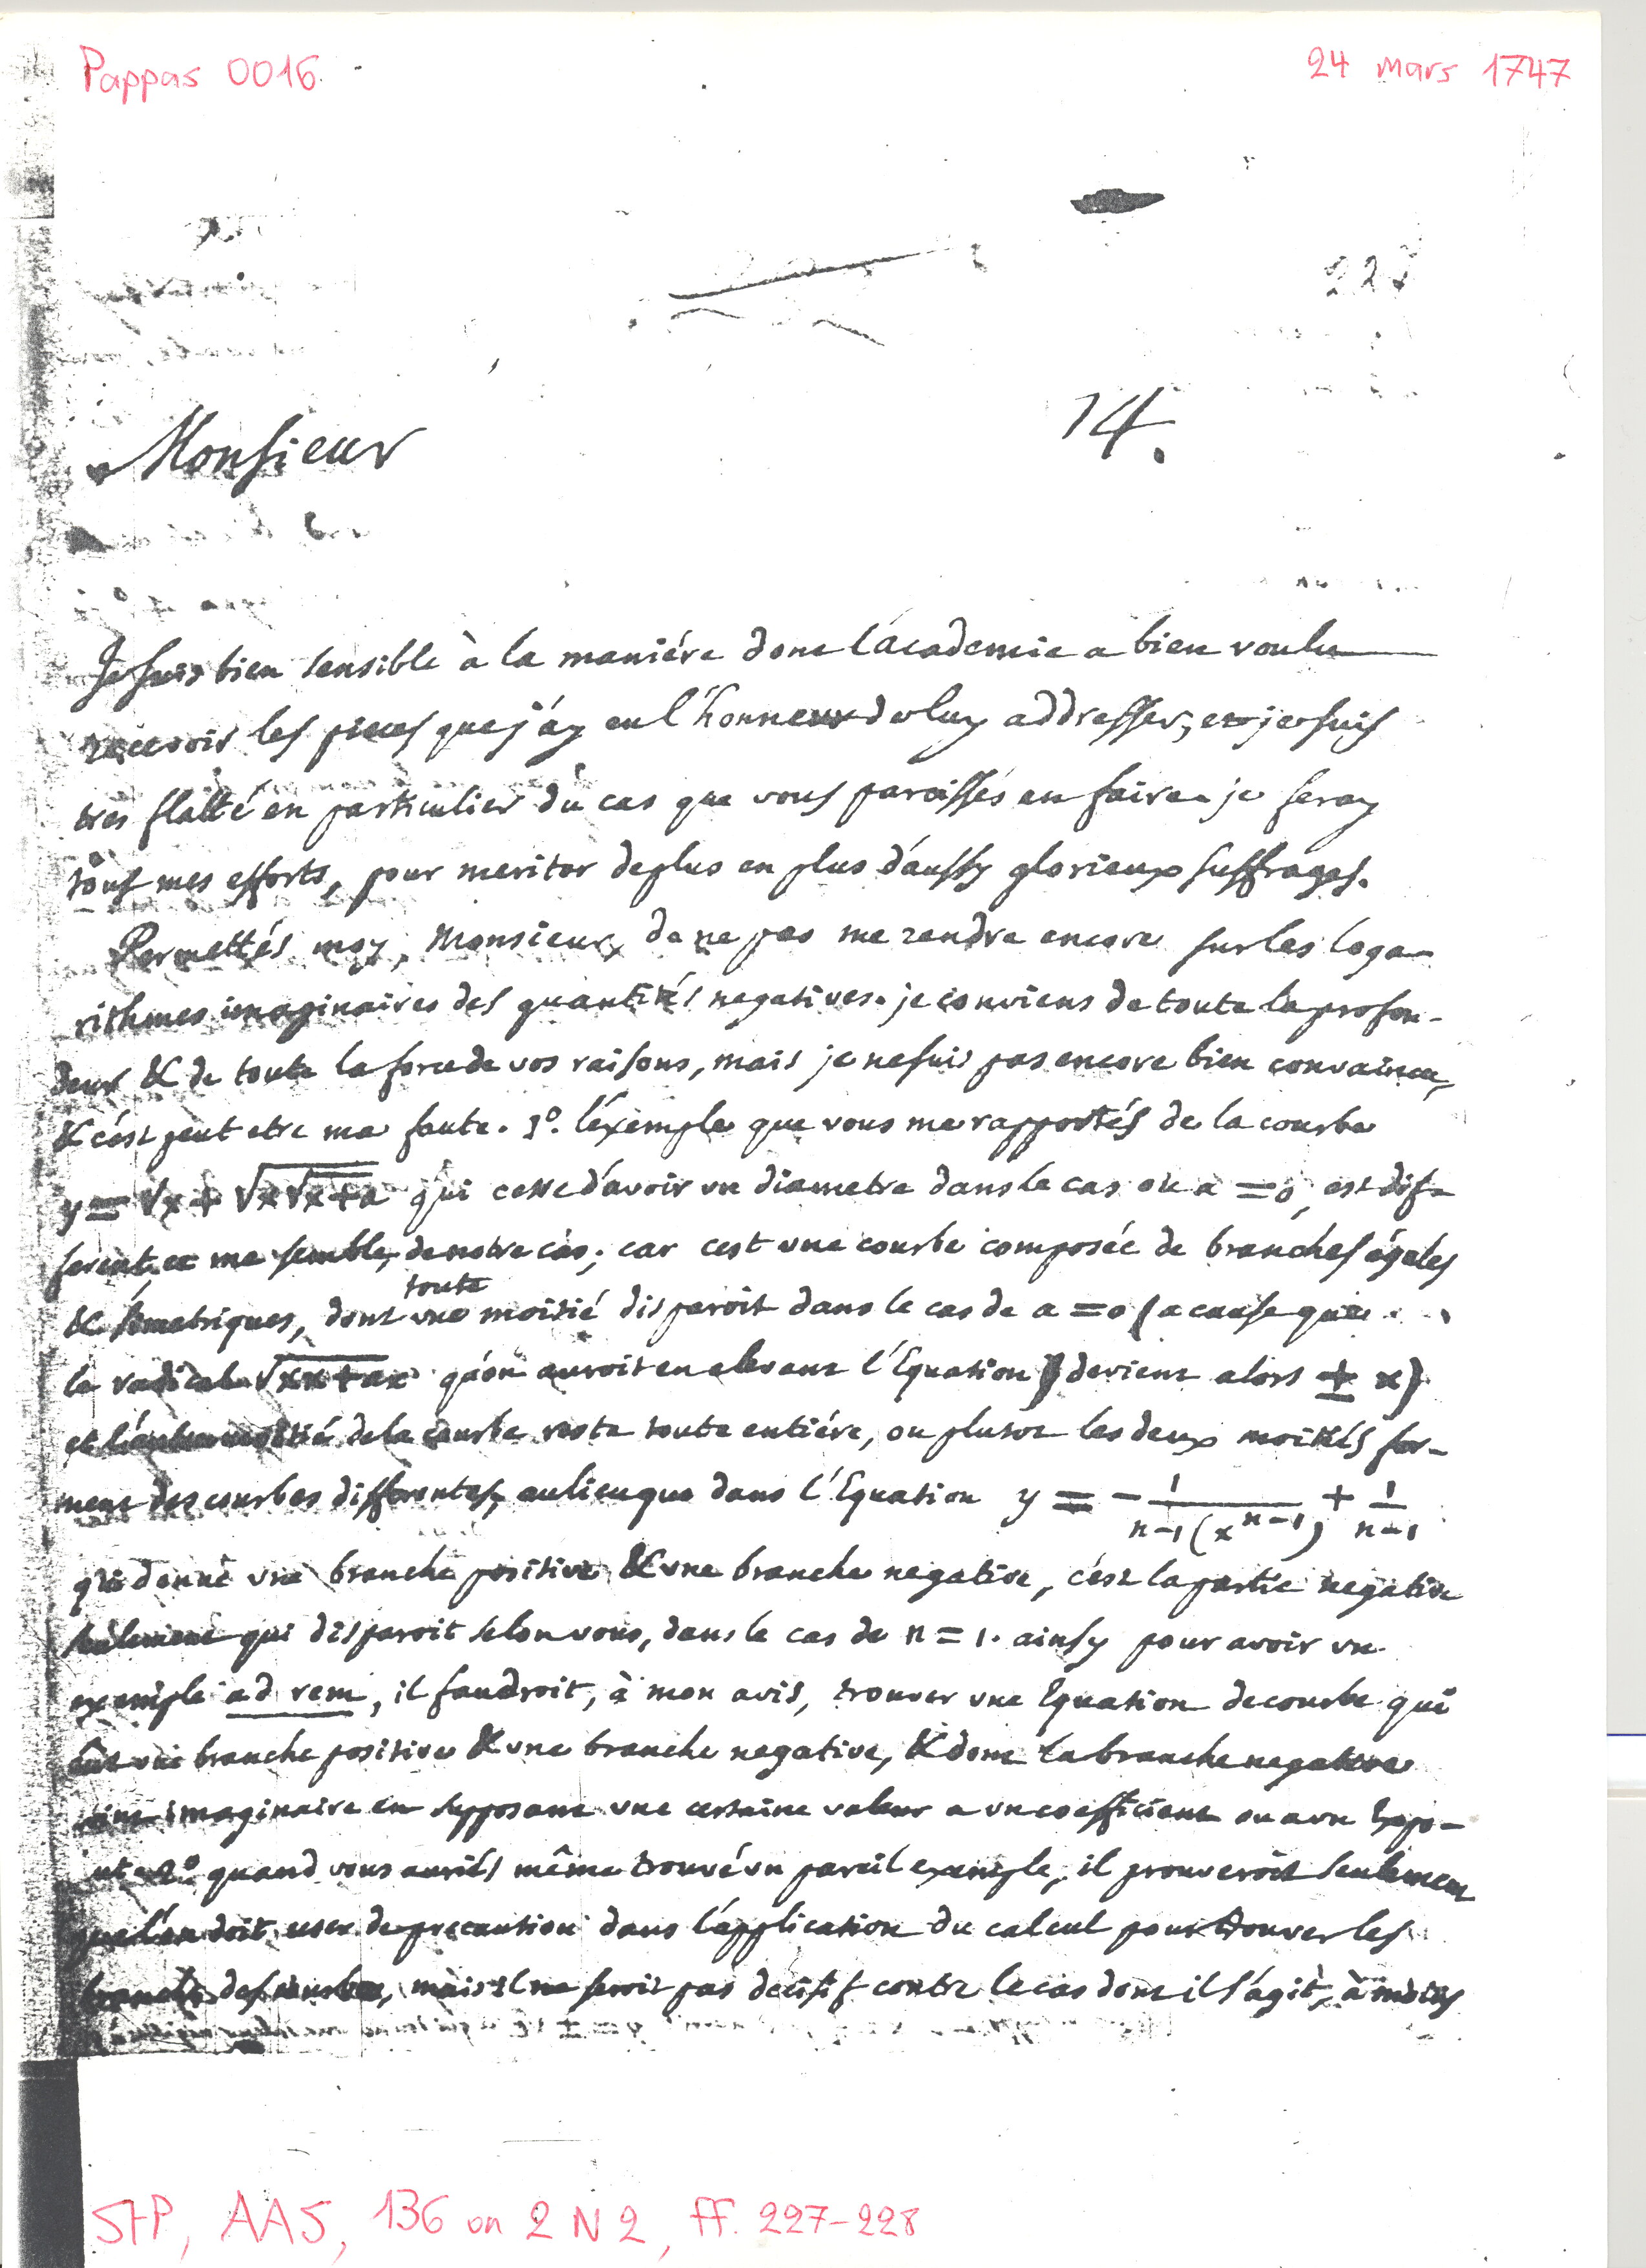 Pappas 0016
24 mars 1747
227
14.
Monsieur
Je suis bien sensible à la maniére dont l'academie a bien voulu
recevoir les pieces que j'ay eu l'honneur de luy addresser, et je suis
tres flatté en particulier du cas que vous paroissés en faire. je feray
tous mes efforts, pour meriter de plus en plus d'aussy glorieux suffrages.
Permettés moy, Monsieur, de ne pas me rendre encore sur les loga-
rithmes imaginaires des quantités negatives. je conviens de toute la profon-
deur & de toute la force de vos raisons, mais je ne suis pas encore bien convaincu,
& c'est peut etre ma faute. 1°. l'exemple que vous me rapportés de la courbe
y = √x + √x√x+a qui cesse d'avoir un diametre dans le cas ou a = 0, est dif-
ferent, ce me semble, de notre cas; car c'est une courbe composée de branches égales
& simetriques, dont toute une moitié disparoit dans le cas de a = 0 (a cause que
le radical √xx+ax qu'on auroit en elevant l'Equation) devient alors ± x)
et l'autre moitié de la courbe reste toute entiére, ou plutot les deux moitiés for-
ment des courbes differentes, au lieu que dans l'Equation y = - 1/n-1(x^n-1) + 1/n-1
qui donne une branche positive & une branche negative, c'est la partie negative
seulement qui disparoit selon vous, dans le cas de n = 1. ainsy pour avoir un
exemple ad rem, il faudroit, à mon avis, trouver une Equation de courbe qui
eut une branche positive & une branche negative, & dont la branche negative
vint imaginaire en supposant une certaine valeur a un coefficient ou a un Expo-
nt. 2° quand vous auriés même trouvé un pareil exemple, il prouveroit seulement
que l'on doit user de precaution dans l'application du calcul pour trouver les
branches des courbes, mais il ne seroit pas décisif contre le cas dont il s'agit, à moins
STP, AAS, 136 on 2 N 2, ff. 227-228